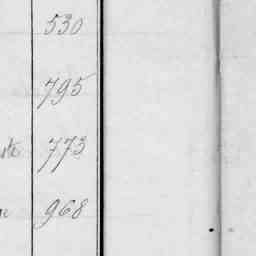 530
795
773
968